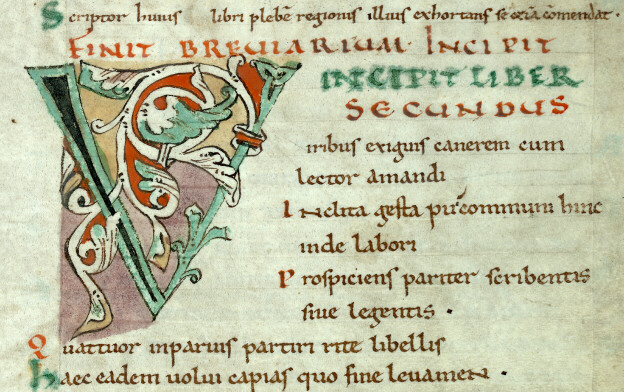 Scriptor huius libri plebē regionis illius exhortans se oīa comendat·
FINIT BREVIARIUM INCIPIT
INCIPIT LIBER
SECUNDUS
Viribus exiguis canerem cum
lector amandi
Inclita gesta pir communi hinc
inde labori
Prospiciens pariter scribentis
siue legentis·
Quattuor inparuis partiri rite libellis
Haec eadem uolui capias quo fine leuamen·